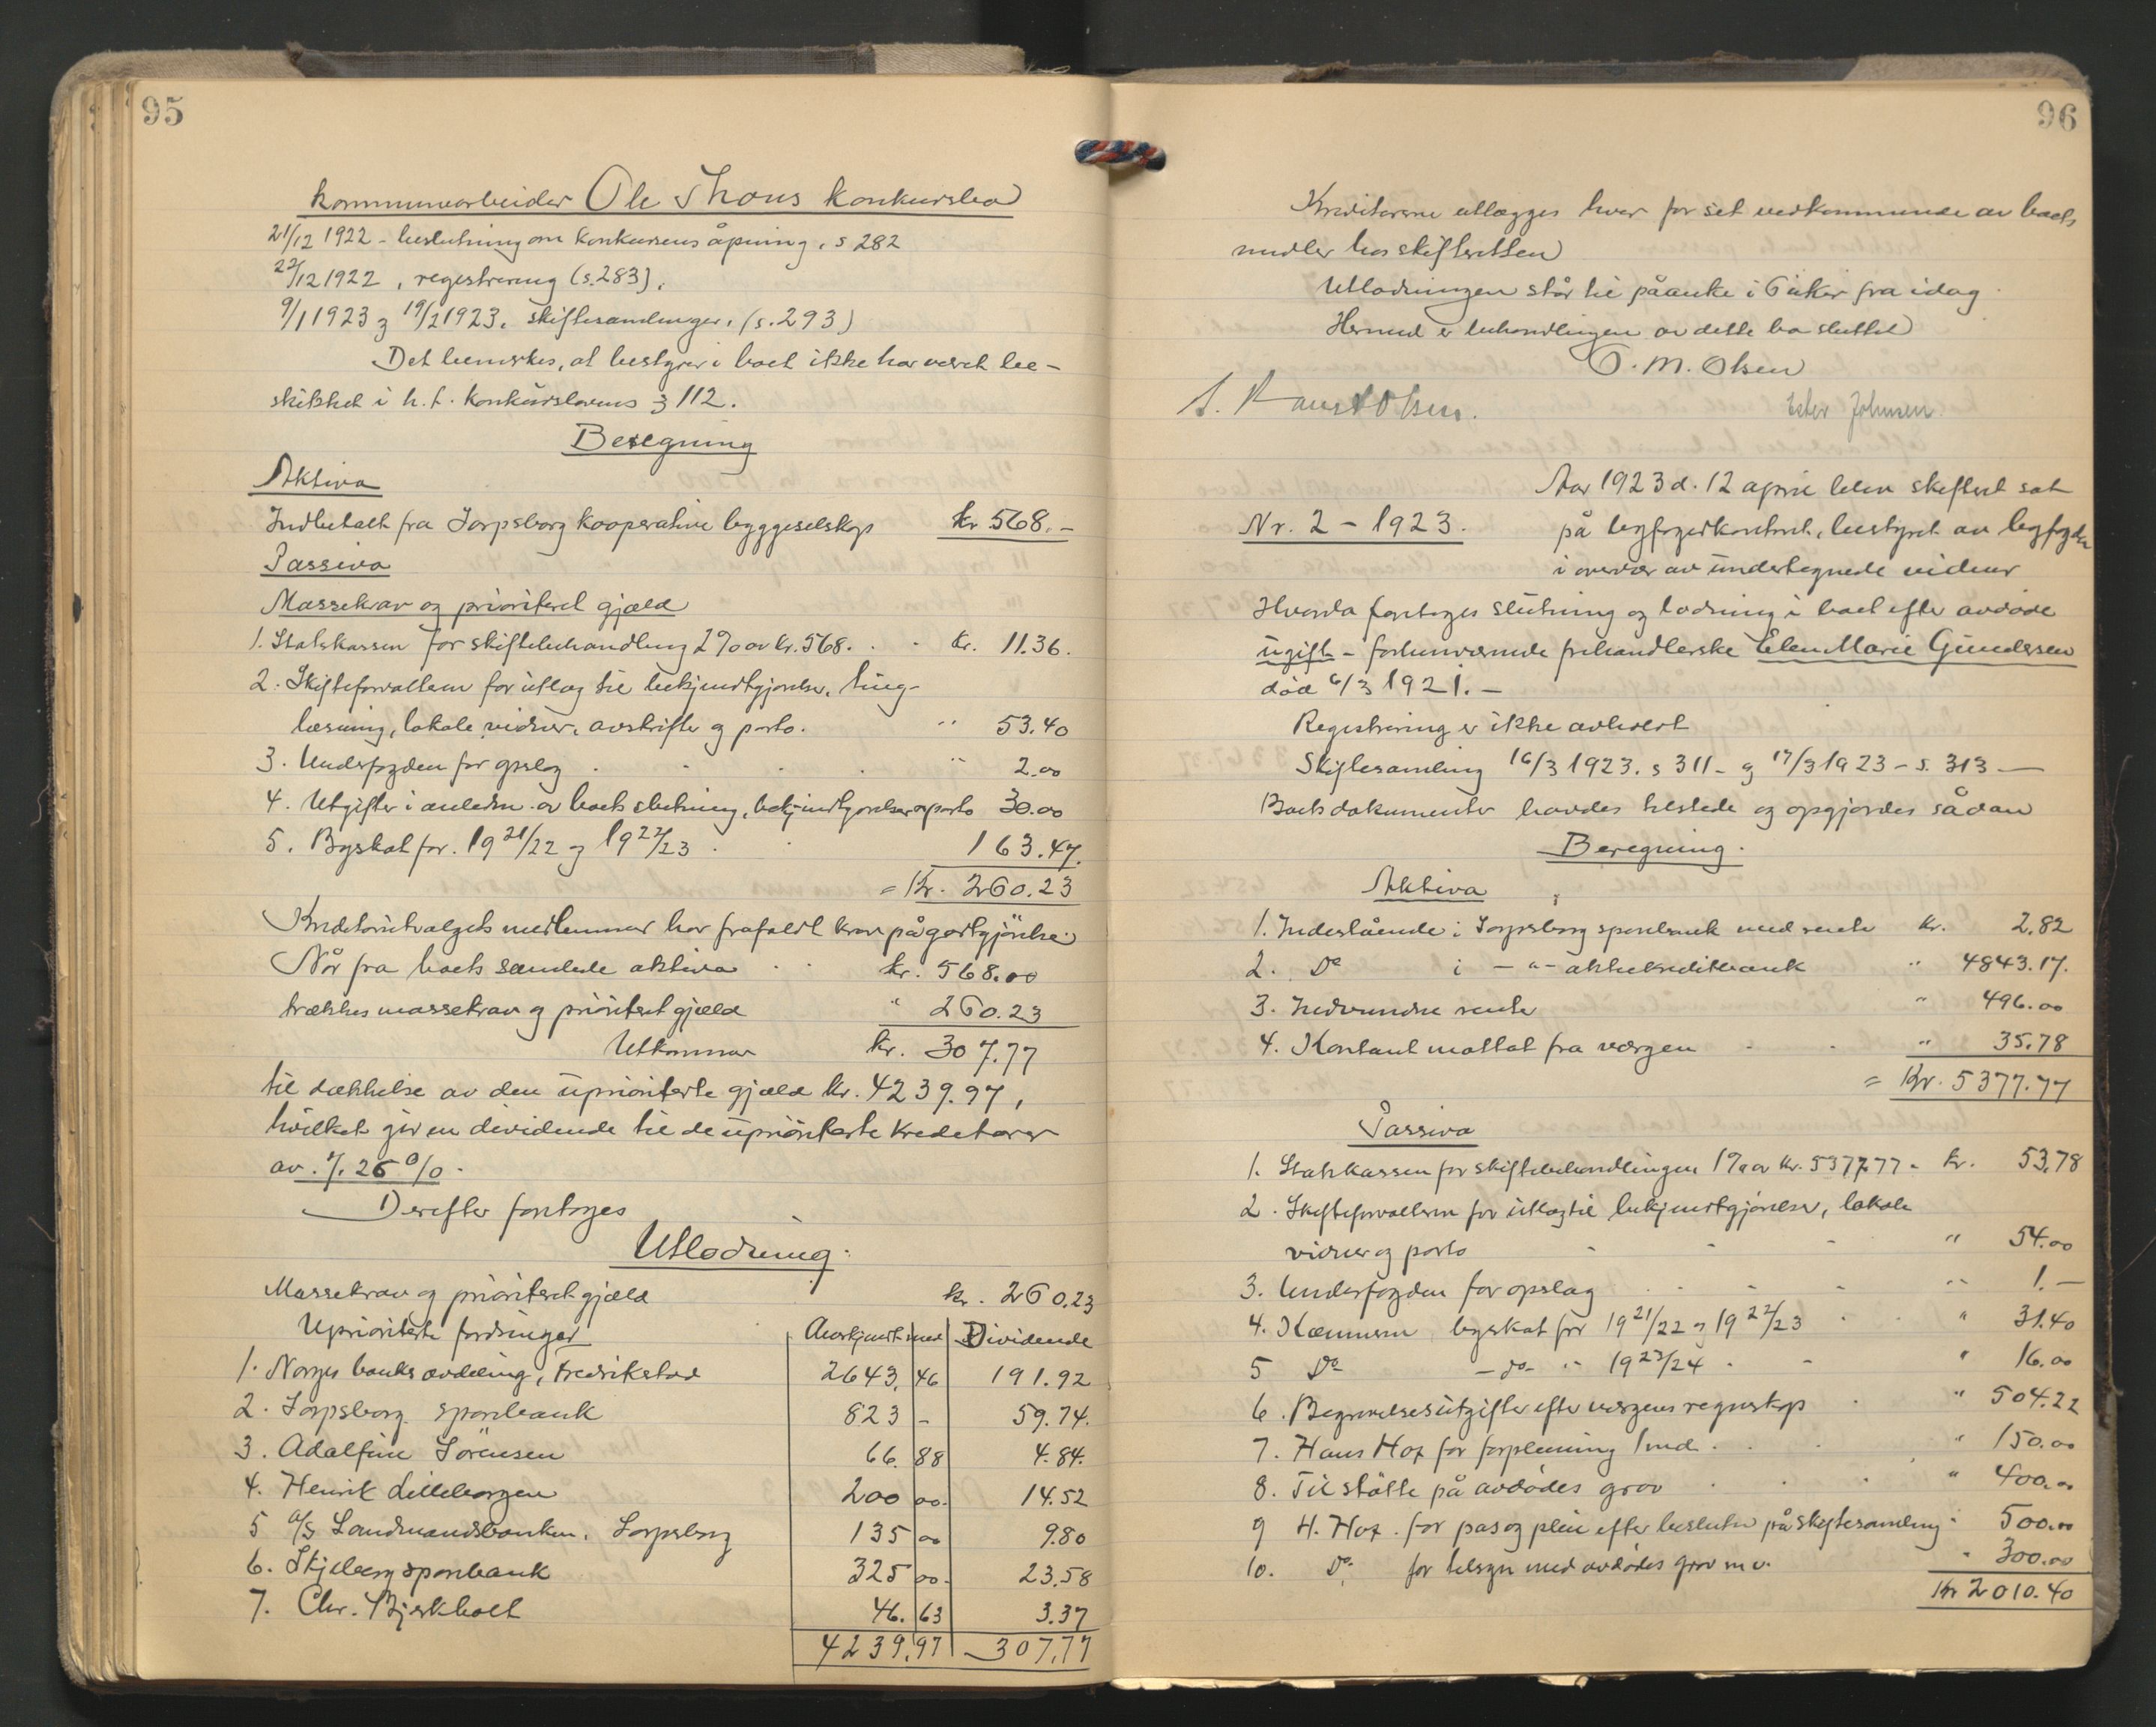 95
kommunearbeider Ole Thons konkursbo
21/12 1922 - beslutning om konkursens åpning, s 282
22/12 1922, registrering (s. 283),
9/1 1923 og 19/2 1923, skiftesamlinger, (s. 293)
Det bemerkes, at bestyrer i boet ikke har været be-
skikket i h. t. konkurslovens § 112.
Beregning
Aktiva
Indbetalt fra Sarpsborg kooperative byggeselskap kr 568.-
Passiva
Massekrav og prioritert gjæld
1. Statskassen for skiftebehandling 2% av kr. 568. . - kr. 11.36.
2. Skifteforvalteren for utlæg til bekjendtgjørelse, ting-
læsning, lokale, vidner, avskrifter og porto. " 53.40
3. Underfogden for opslag . - . . " 2.00
4. Utgifter i anledn. av boets slutning, bekjendtgjørelser og porto 30.00
5. Byskat for 1921/22 og 1922/23 . . 163.47.
= Kr. 260.23
Kreditorutvalgets medlemmer har frafaldt krav på godtgjörelse.
Når fra boets samlede aktiva . . kr. 568.00
trækkes massekrav og prioritert gjæld " 260.23
Utkommer kr. 307.77
til dækkelse av den uprioriterte gjæld kr. 4239.97,
hvilket gir en dividende til de uprioriterte kreditorer
av 7.26 %.
Derefter foretoges
Utlodning.
Massekrav og prioritert gjæld kr. 260.23
Uprioriterte fordringer Anerkjendt med Dividende
1. Norges banks avdeling, Fredrikstad 2643.46 191.92
2. Sarpsborg sparebank 823 - 59.74.
3. Adolfine Sörensen 66.88 4.84.
4. Henrik Lilleborgen 200 00. 14.52
5 A/S Landmandsbanken, Sarpsborg 135 00 9.80
6. Skjeberg sparebank 325 00. 23.58
7. Chr. Bjerkholt 46.63 3.37
4239.97 - 307.77
96
Kreditorerne utlægges hver for sit vedkommende av boets
midler hos skifteretten
Utlodningen står til påanke i 6 uker fra idag.
Hermed er behandlingen av dette bo sluttet
O. M. Olsen
Ester Johnsen.
Nr. 2 - 1923.
Aar 1923 d. 12 april blev skifteret sat
på byfogedkontoret, bestyret av byfogden
i overvær av undertegnede vidner
Hvorda foretoges slutning og lodning i boet efter avdøde
ugift - forhenværende frihandlerske Elen Marie Gundersen
död 6/3 1921. -
Registrering er ikke avholdt
Skiftesamling 16/3 1923. s 311 - og 17/3 1923 - s. 313 -
Boets dokumenter havdes tilstede og opgjordes sådan
Beregning.
Aktiva
1. Indestående i Sarpsborg sparebank med rente kr. 2.82
2. Do i - " - aktiekreditbank " 4843.17.
3. Indvundne rente " 496.00
4. Kontant mottat fra værgen - . " 35.78
= Kr. 5377.77
Passiva
1. Statskassen for skiftebehandlingen 1% av kr. 5377.77 - kr. 53.78
2. Skifteforvalteren for utlæg til bekjendtgjörelse, lokale
vidner og porto - - - " 54.00
3. Underfogden for opslag . - - - " 1.-
4. Kæmneren byskat for 1921/22 og 1922/23 . . " 31.40
5 Do - do - " 1923/24 - - " 16.00
6. Begravelsesutgifter efter værgens regnskap . " 504.22
7. Hans Hox for forpleining 1 md. . . " 150.00
8. Til stötte på avdödes grav . . " 400.00
9 H. Hox. for pas og pleie efter beslutn på skiftesamling " 500.00
10. Do. for tilsyn med avdödes grav m v. " 300.00
Kr 2010.40